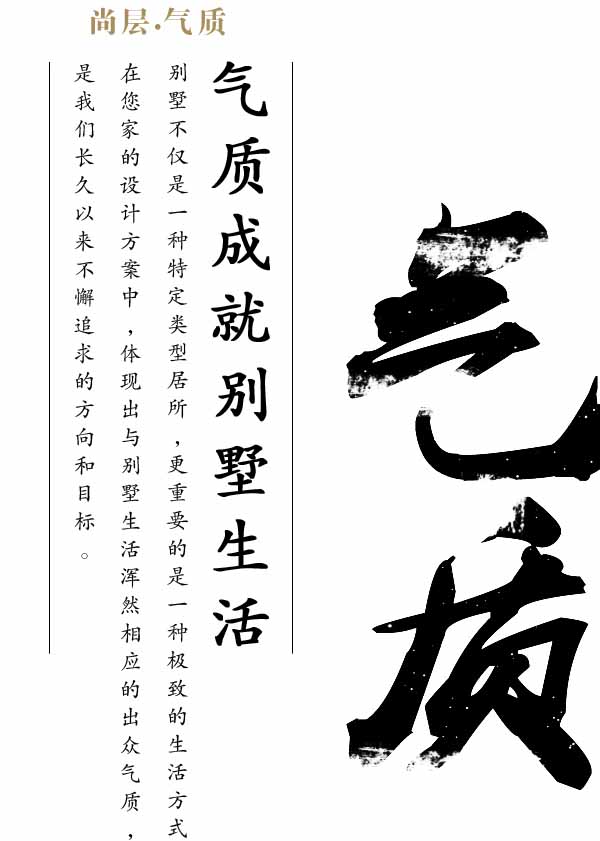 尚层·气质
气质
气质成就别墅生活
别墅不仅是一种特定类型居所，更重要的是一种极致的生活方式
在您家的设计方案中，体现出与别墅生活浑然相应的出众气质，
是我们长久以来不懈追求的方向和目标。